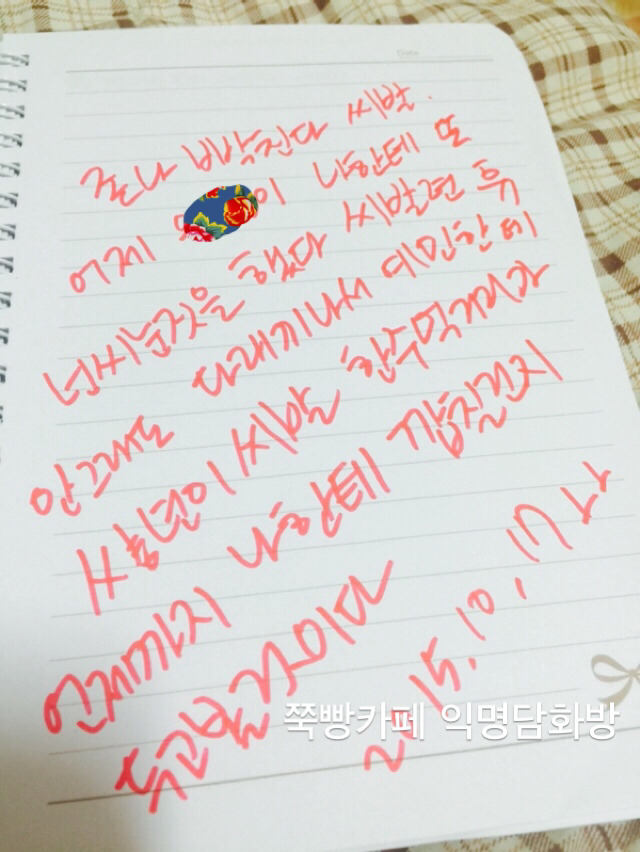 Date
존나 빡친다 씨발.
어제 이 나한테 또
넌씨눈짓을 했다 씨발련 휴
안그래도 다래끼나서 예민한데
씨발 한주먹거리가
언제까지 나한테 깝칠건지
두고볼것이다
2015. 10. 17
쭉빵카페 익명담화방